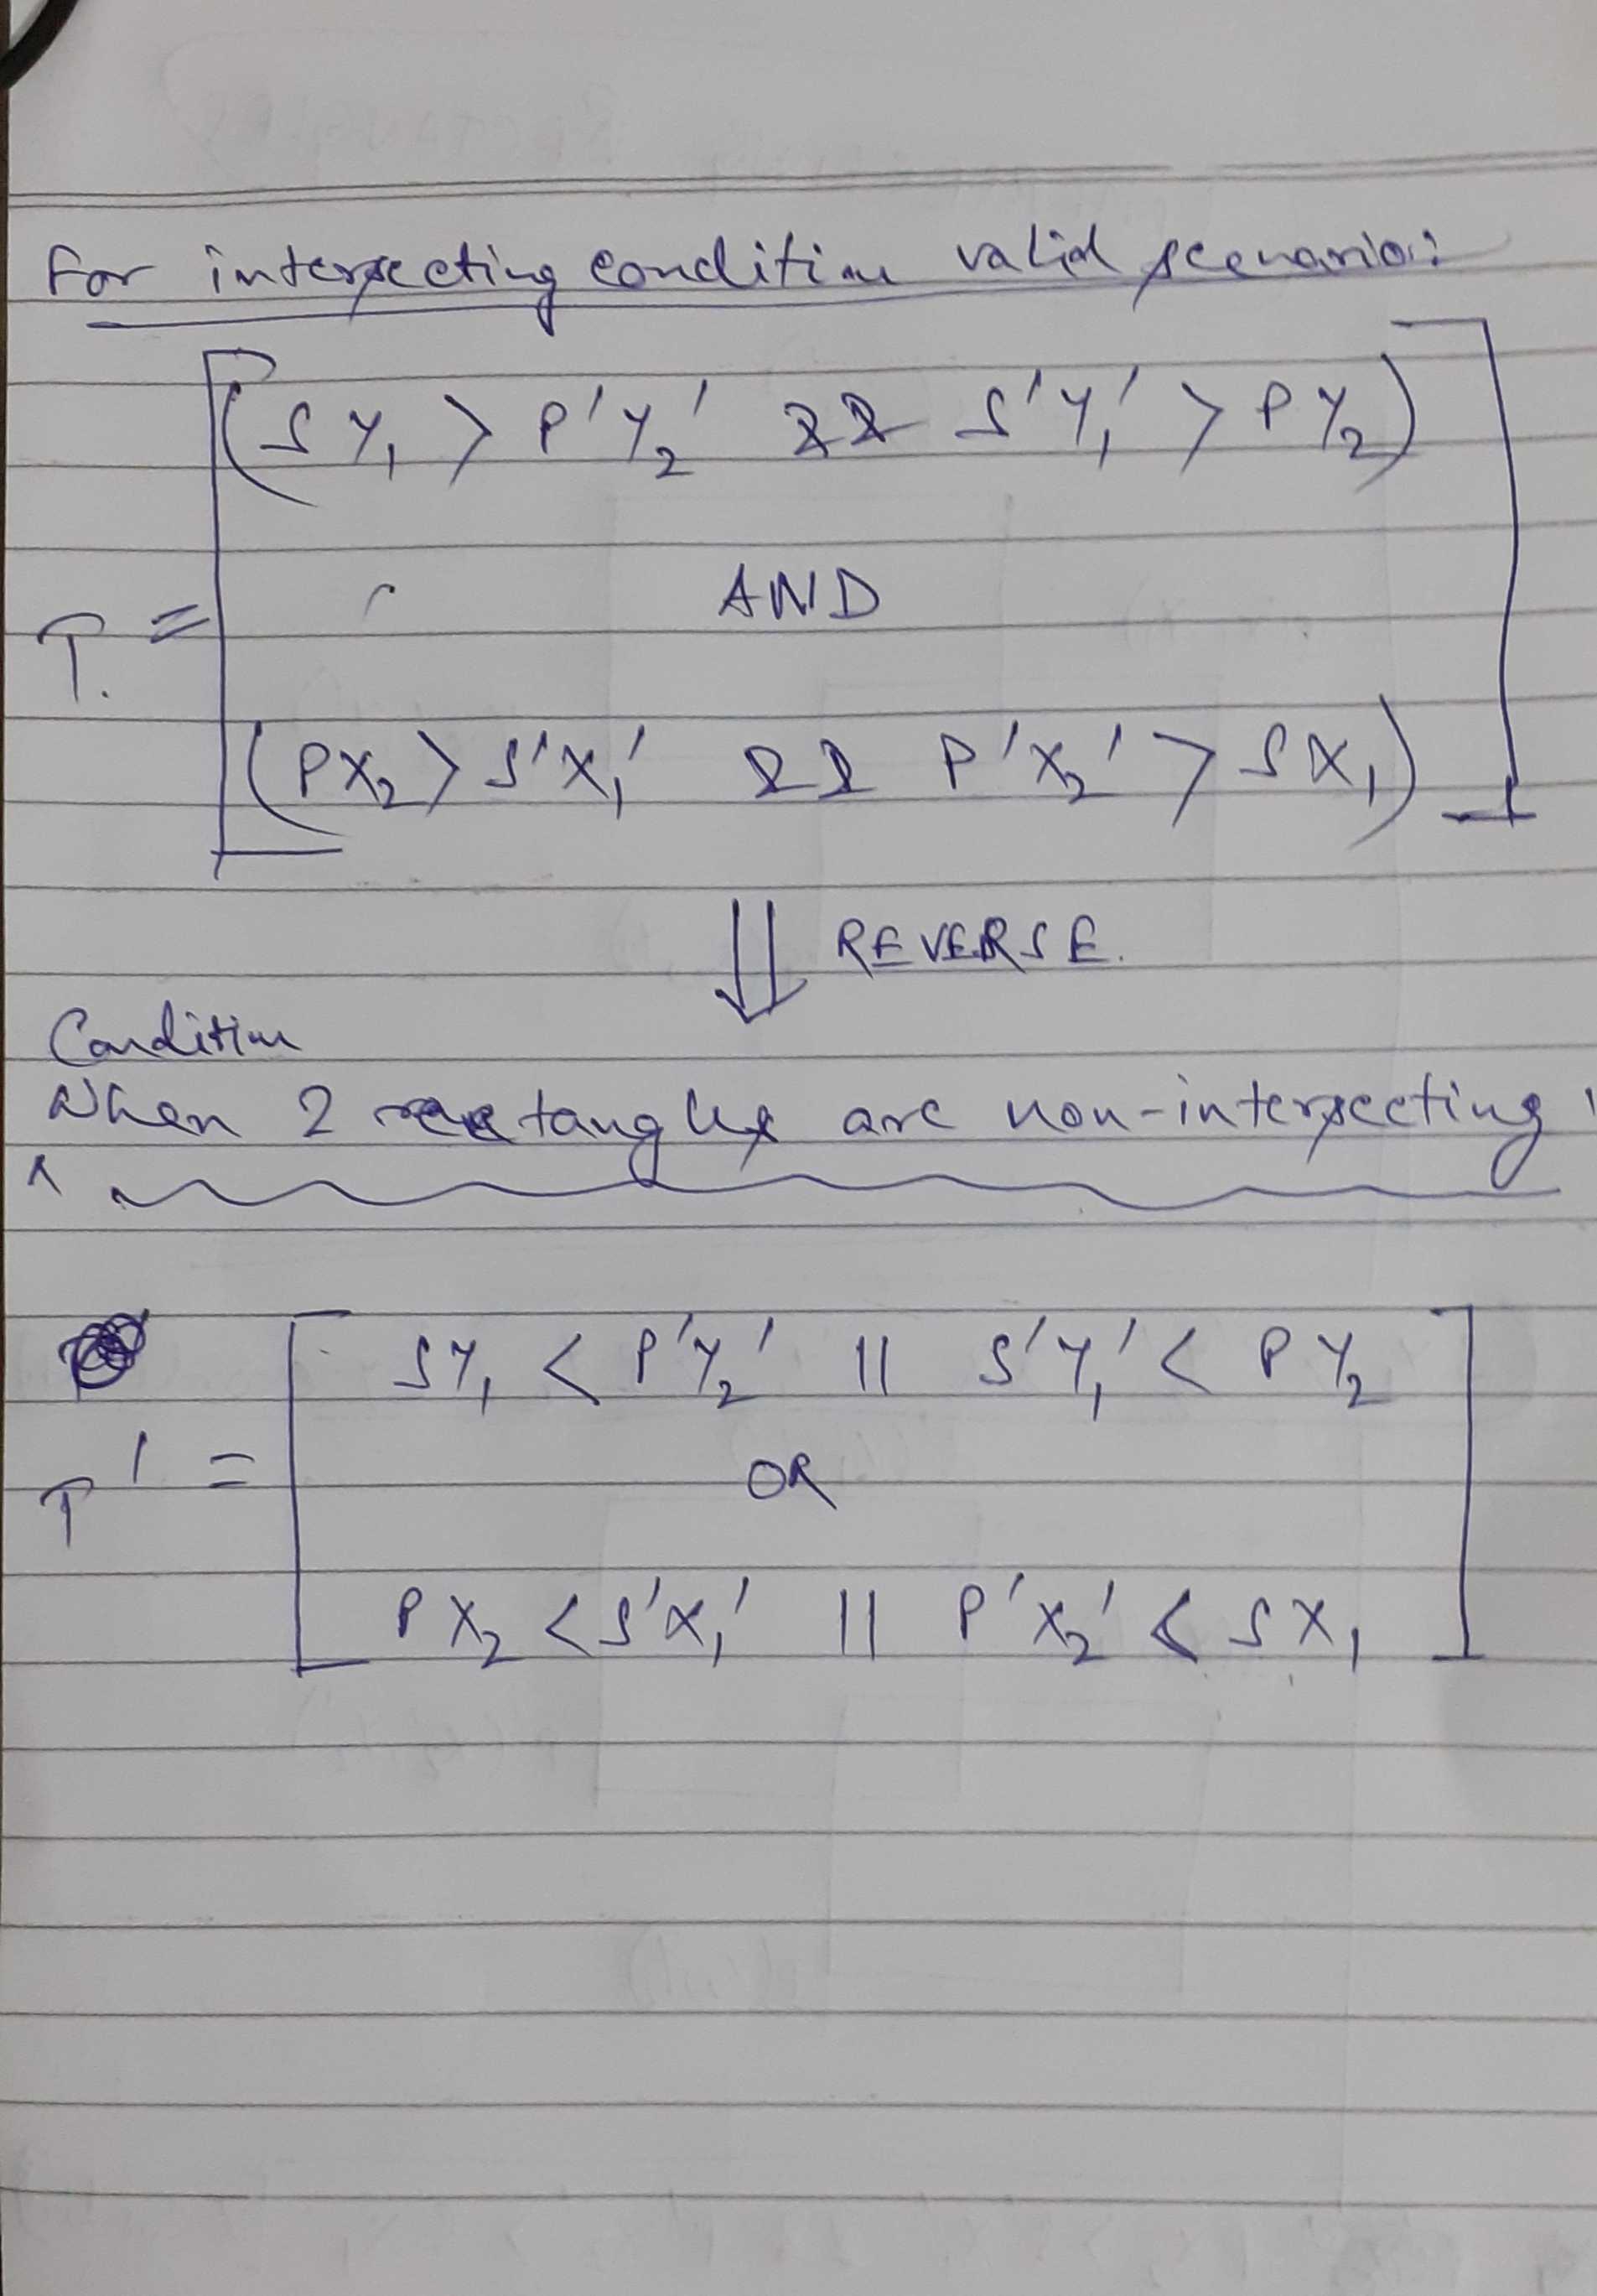 For intersecting condition valid scenario:
(SY₁ > P'Y₂' && S'Y₁' > PY₂)
AND
T. =
(PX₂ > S'X₁' && P'X₂' > SX₁)
⇓ REVERSE.
Condition
When 2 rectangles are non-intersecting
SY₁ < P'Y₂' || S'Y₁' < PY₂
T' = OR
PX₂ < S'X₁' || P'X₂' < SX₁